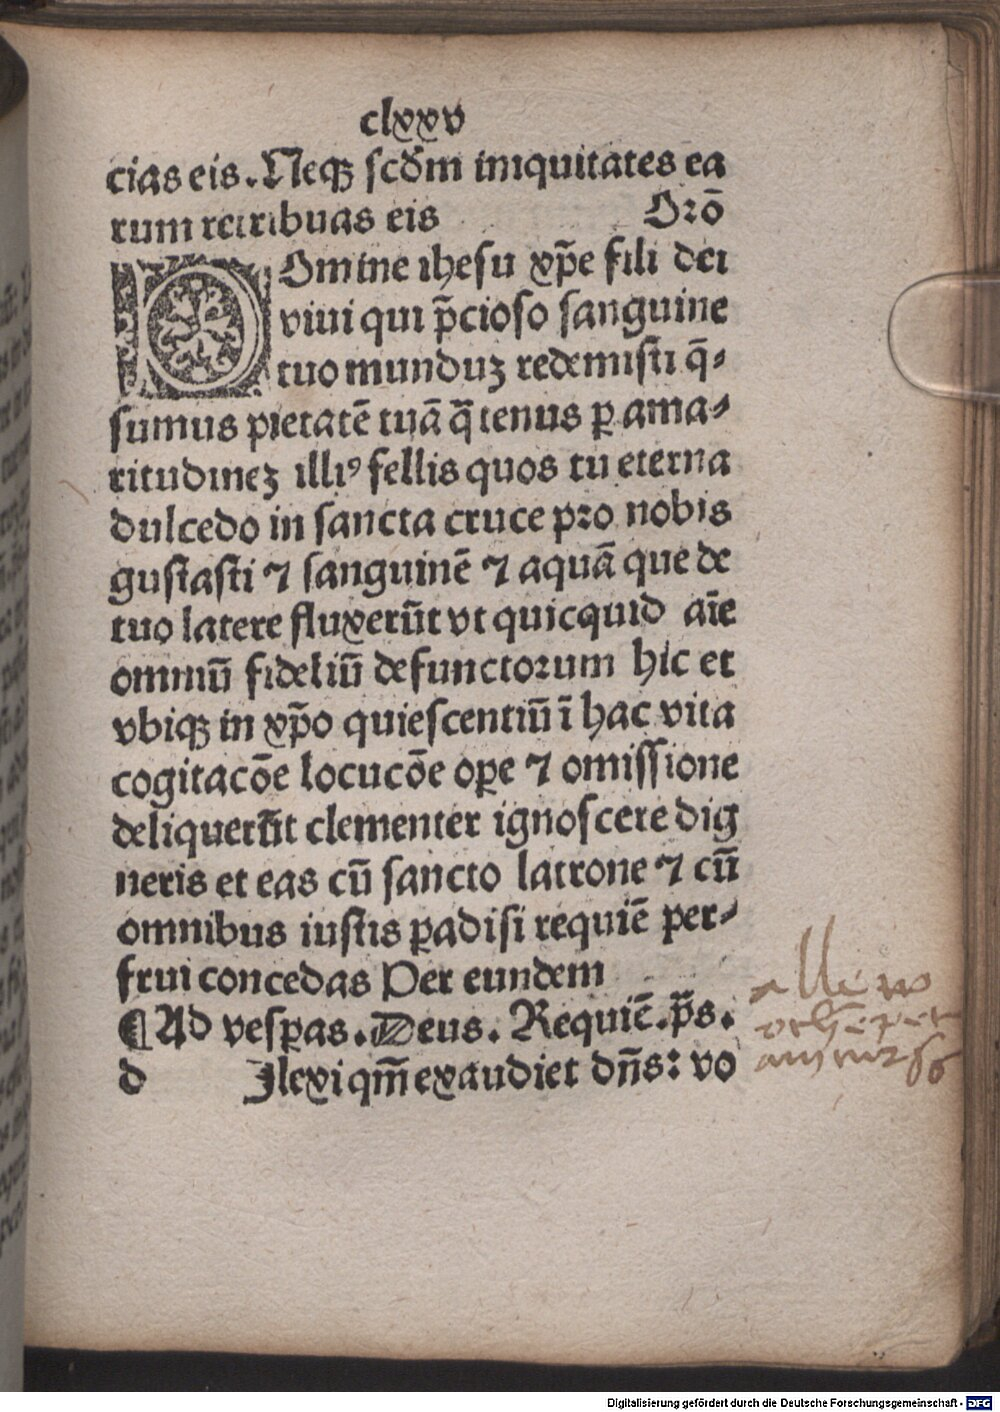 clxxv
cias eis. Neqꝫ scd̄m iniquitates ea
rum retribuas eis Orō
Domine ihesu xp̄e fili dei
viui qui p̄cioso sanguine
tuo munduꝫ redemisti q̄⸗
sumus pietatē tuā q̄tenus ꝑ ama⸗
ritudineꝫ illiꝰ fellis quos tu eterna
dulcedo in sancta cruce pro nobis
gustasti ⁊ sanguinē ⁊ aquā que de
tuo latere fluxerūt vt quicquid aīe
omniū fideliū defunctorum hic et
vbiqꝫ in xp̄o quiescentiū ī hac vita
cogitacōe locucōe oꝑe ⁊ omissione
deliquerūt clementer ignoscere dig
neris et eas cū sancto latrone ⁊ cū
omnibus iustis ꝑadisi requiē per⸗
frui concedas Per eundem
¶ Ad vesꝑas. Deus. Requiē. p̄s.
d Ilexi qm̄ exaudiet dn̄s: vo
Digitalisierung gefördert durch die Deutsche Forschungsgemeinschaft - DFG